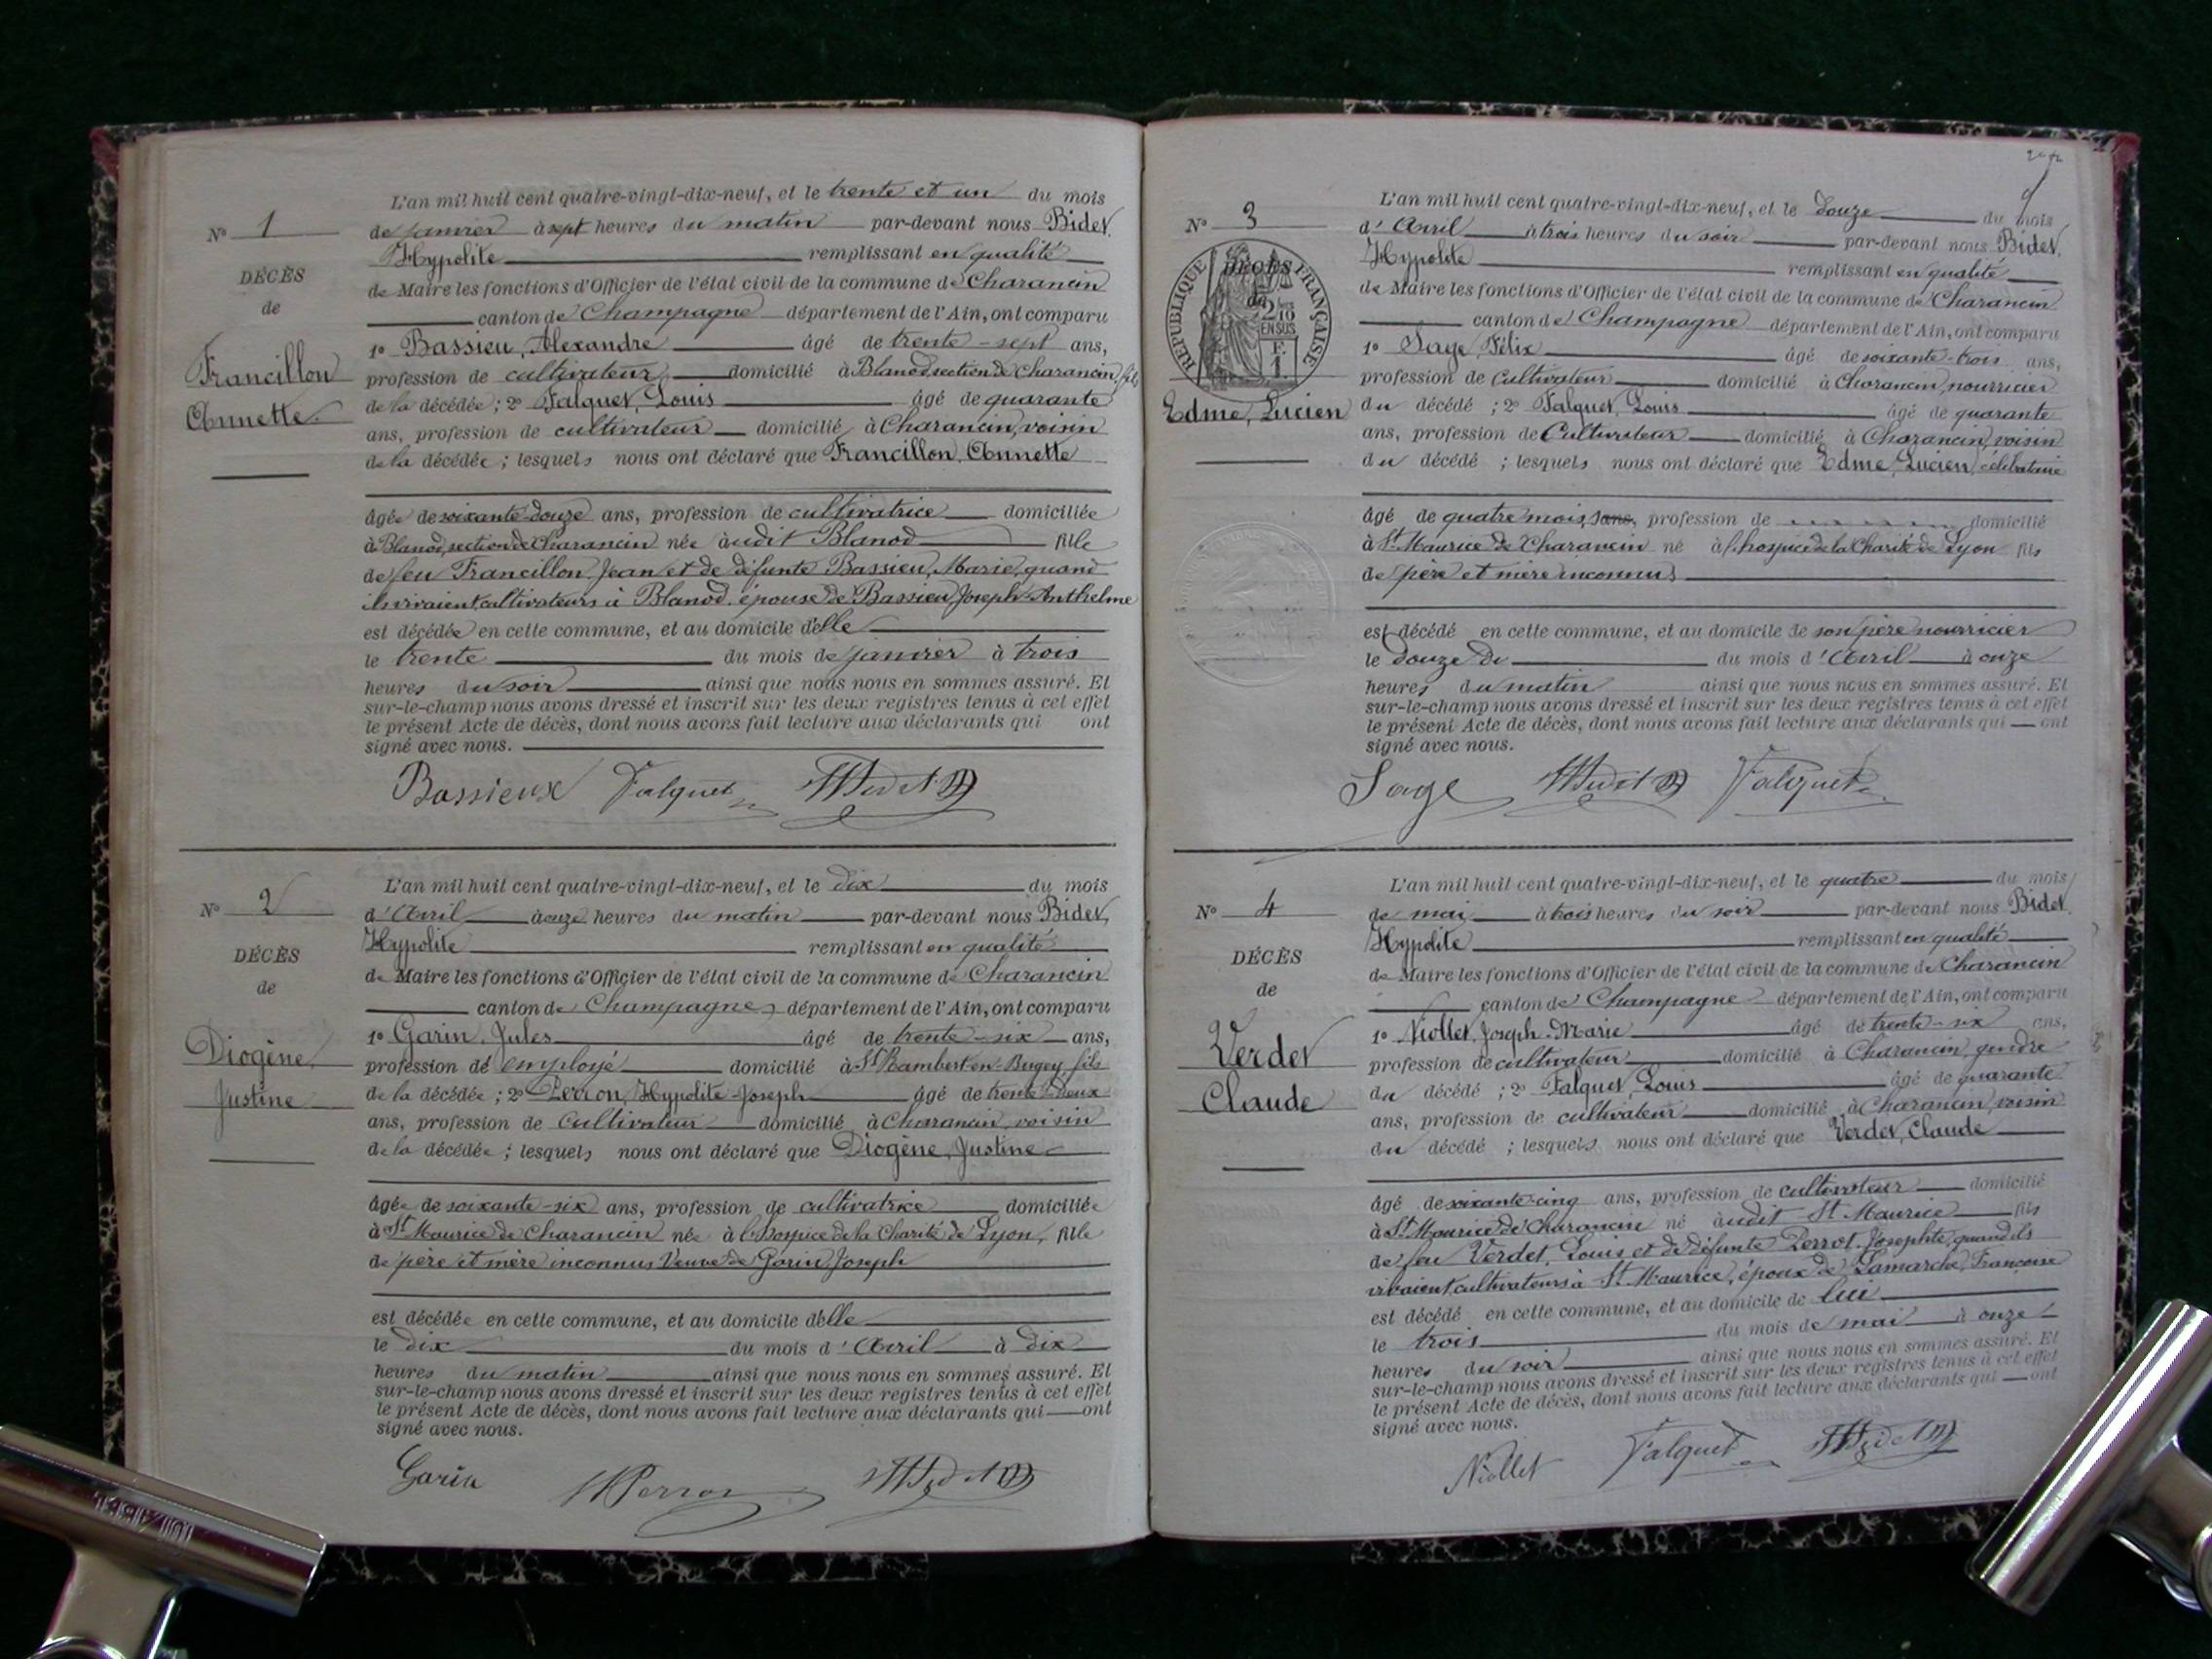 L'an mil huit cent quatre-vingt-dix-neuf, et le trente et un du mois
N° 1
de janvier à sept heures du matin par-devant nous Bidet,
Hypolite remplissant en qualité
DÉCÈS
de
Francillon
Annette.
de Maire les fonctions d'Officier de l'état civil de la commune de Charancin
canton de Champagne département de l'Ain, ont comparu
1° Bassieu, Alexandre âgé de trente-sept ans,
profession de cultivateur, domicilié à Blanod, section de Charancin, fils
de la décédée ; 2° Falquet, Louis âgé de quarante
ans, profession de cultivateur domicilié à Charancin, voisin
de la décédée ; lesquels nous ont déclaré que Francillon, Annette
âgée de soixante-douze ans, profession de cultivatrice domiciliée
à Blanod, section de Charancin née audit Blanod fille
de feu Francillon, Jean et de défunte Bassieu, Marie, quand
ils vivaient, cultivateurs à Blanod, épouse de Bassieu Joseph-Anthelme
est décédée en cette commune, et au domicile d'elle
le trente du mois de janvier à trois
heures du soir ainsi que nous nous en sommes assuré. Et
sur-le-champ nous avons dressé et inscrit sur les deux registres tenus à cet effet
le présent Acte de décès, dont nous avons fait lecture aux déclarants qui ont
signé avec nous.
Bassieux Falquet
L'an mil huit cent quatre-vingt-dix-neuf, et le dix du mois
N° 2
d'Avril à onze heures du matin par-devant nous Bidet,
Hypolite remplissant en qualité
DÉCÈS
de
Diogène,
Justine
de Maire les fonctions d'Officier de l'état civil de la commune de Charancin
canton de Champagne département de l'Ain, ont comparu
1° Garin, Jules âgé de trente-six ans,
profession de employé domicilié à St Rambert-en-Bugey, fils
de la décédée ; 2° Perron, Hypolite-Joseph âgé de trente-deux
ans, profession de cultivateur domicilié à Charancin, voisin
de la décédée ; lesquels nous ont déclaré que Diogène, Justine
âgée de soixante-six ans, profession de cultivatrice domiciliée
à St Maurice de Charancin née à l'hospice de la Charité de Lyon, fille
de père et mère inconnus Veuve de Garin Joseph
est décédée en cette commune, et au domicile d'elle
le dix du mois d'Avril à dix
heures du matin ainsi que nous nous en sommes assuré. Et
sur-le-champ nous avons dressé et inscrit sur les deux registres tenus à cet effet
le présent Acte de décès, dont nous avons fait lecture aux déclarants qui ont
signé avec nous.
Garin HPerron
L'an mil huit cent quatre-vingt-dix-neuf, et le douze du mois
N° 3
d'Avril à trois heures du soir par-devant nous Bidet,
Hypolite remplissant en qualité
RÉPUBLIQUE FRANÇAISE
DÉCÈS
de
2/10
EN SUS
F.
1
Edme, Lucien
de Maire les fonctions d'Officier de l'état civil de la commune de Charancin
canton de Champagne département de l'Ain, ont comparu
1° Sage, Félix âgé de soixante-trois ans,
profession de cultivateur domicilié à Charancin, nourricier
du décédé ; 2° Falquet, Louis âgé de quarante
ans, profession de Cultivateur domicilié à Charancin, voisin
du décédé ; lesquels nous ont déclaré que Edme, Lucien, célibataire
âgé de quatre mois, ans, profession de domicilié
à St Maurice de Charancin né à l'hospice de la Charité de Lyon fils
de père et mère inconnus
est décédé en cette commune, et au domicile de son père nourricier
le douze de du mois d'Avril à onze
heures du matin ainsi que nous nous en sommes assuré. Et
sur-le-champ nous avons dressé et inscrit sur les deux registres tenus à cet effet
le présent Acte de décès, dont nous avons fait lecture aux déclarants qui ont
signé avec nous.
Sage Falquet
L'an mil huit cent quatre-vingt-dix-neuf, et le quatre du mois
N° 4
de mai à trois heures du soir par-devant nous Bidet,
Hypolite remplissant en qualité
DÉCÈS
de
Verdet
Claude
de Maire les fonctions d'Officier de l'état civil de la commune de Charancin
canton de Champagne département de l'Ain, ont comparu
1° Niollet, Joseph-Marie âgé de trente-six ans,
profession de cultivateur domicilié à Charancin, gendre
du décédé ; 2° Falquet, Louis âgé de quarante
ans, profession de cultivateur domicilié à Charancin, voisin
du décédé ; lesquels nous ont déclaré que Verdet, Claude
âgé de soixante-cinq ans, profession de cultivateur domicilié
à St Maurice de Charancin né audit St Maurice fils
de feu Verdet, Louis et de défunte Perrot, Josephte, quand ils
vivaient, cultivateurs à St Maurice, époux de Lamarche, Françoise
est décédé en cette commune, et au domicile de lui
le trois du mois de mai à onze
heures du soir ainsi que nous nous en sommes assuré. Et
sur-le-champ nous avons dressé et inscrit sur les deux registres tenus à cet effet
le présent Acte de décès, dont nous avons fait lecture aux déclarants qui ont
signé avec nous.
Niollet Falquet